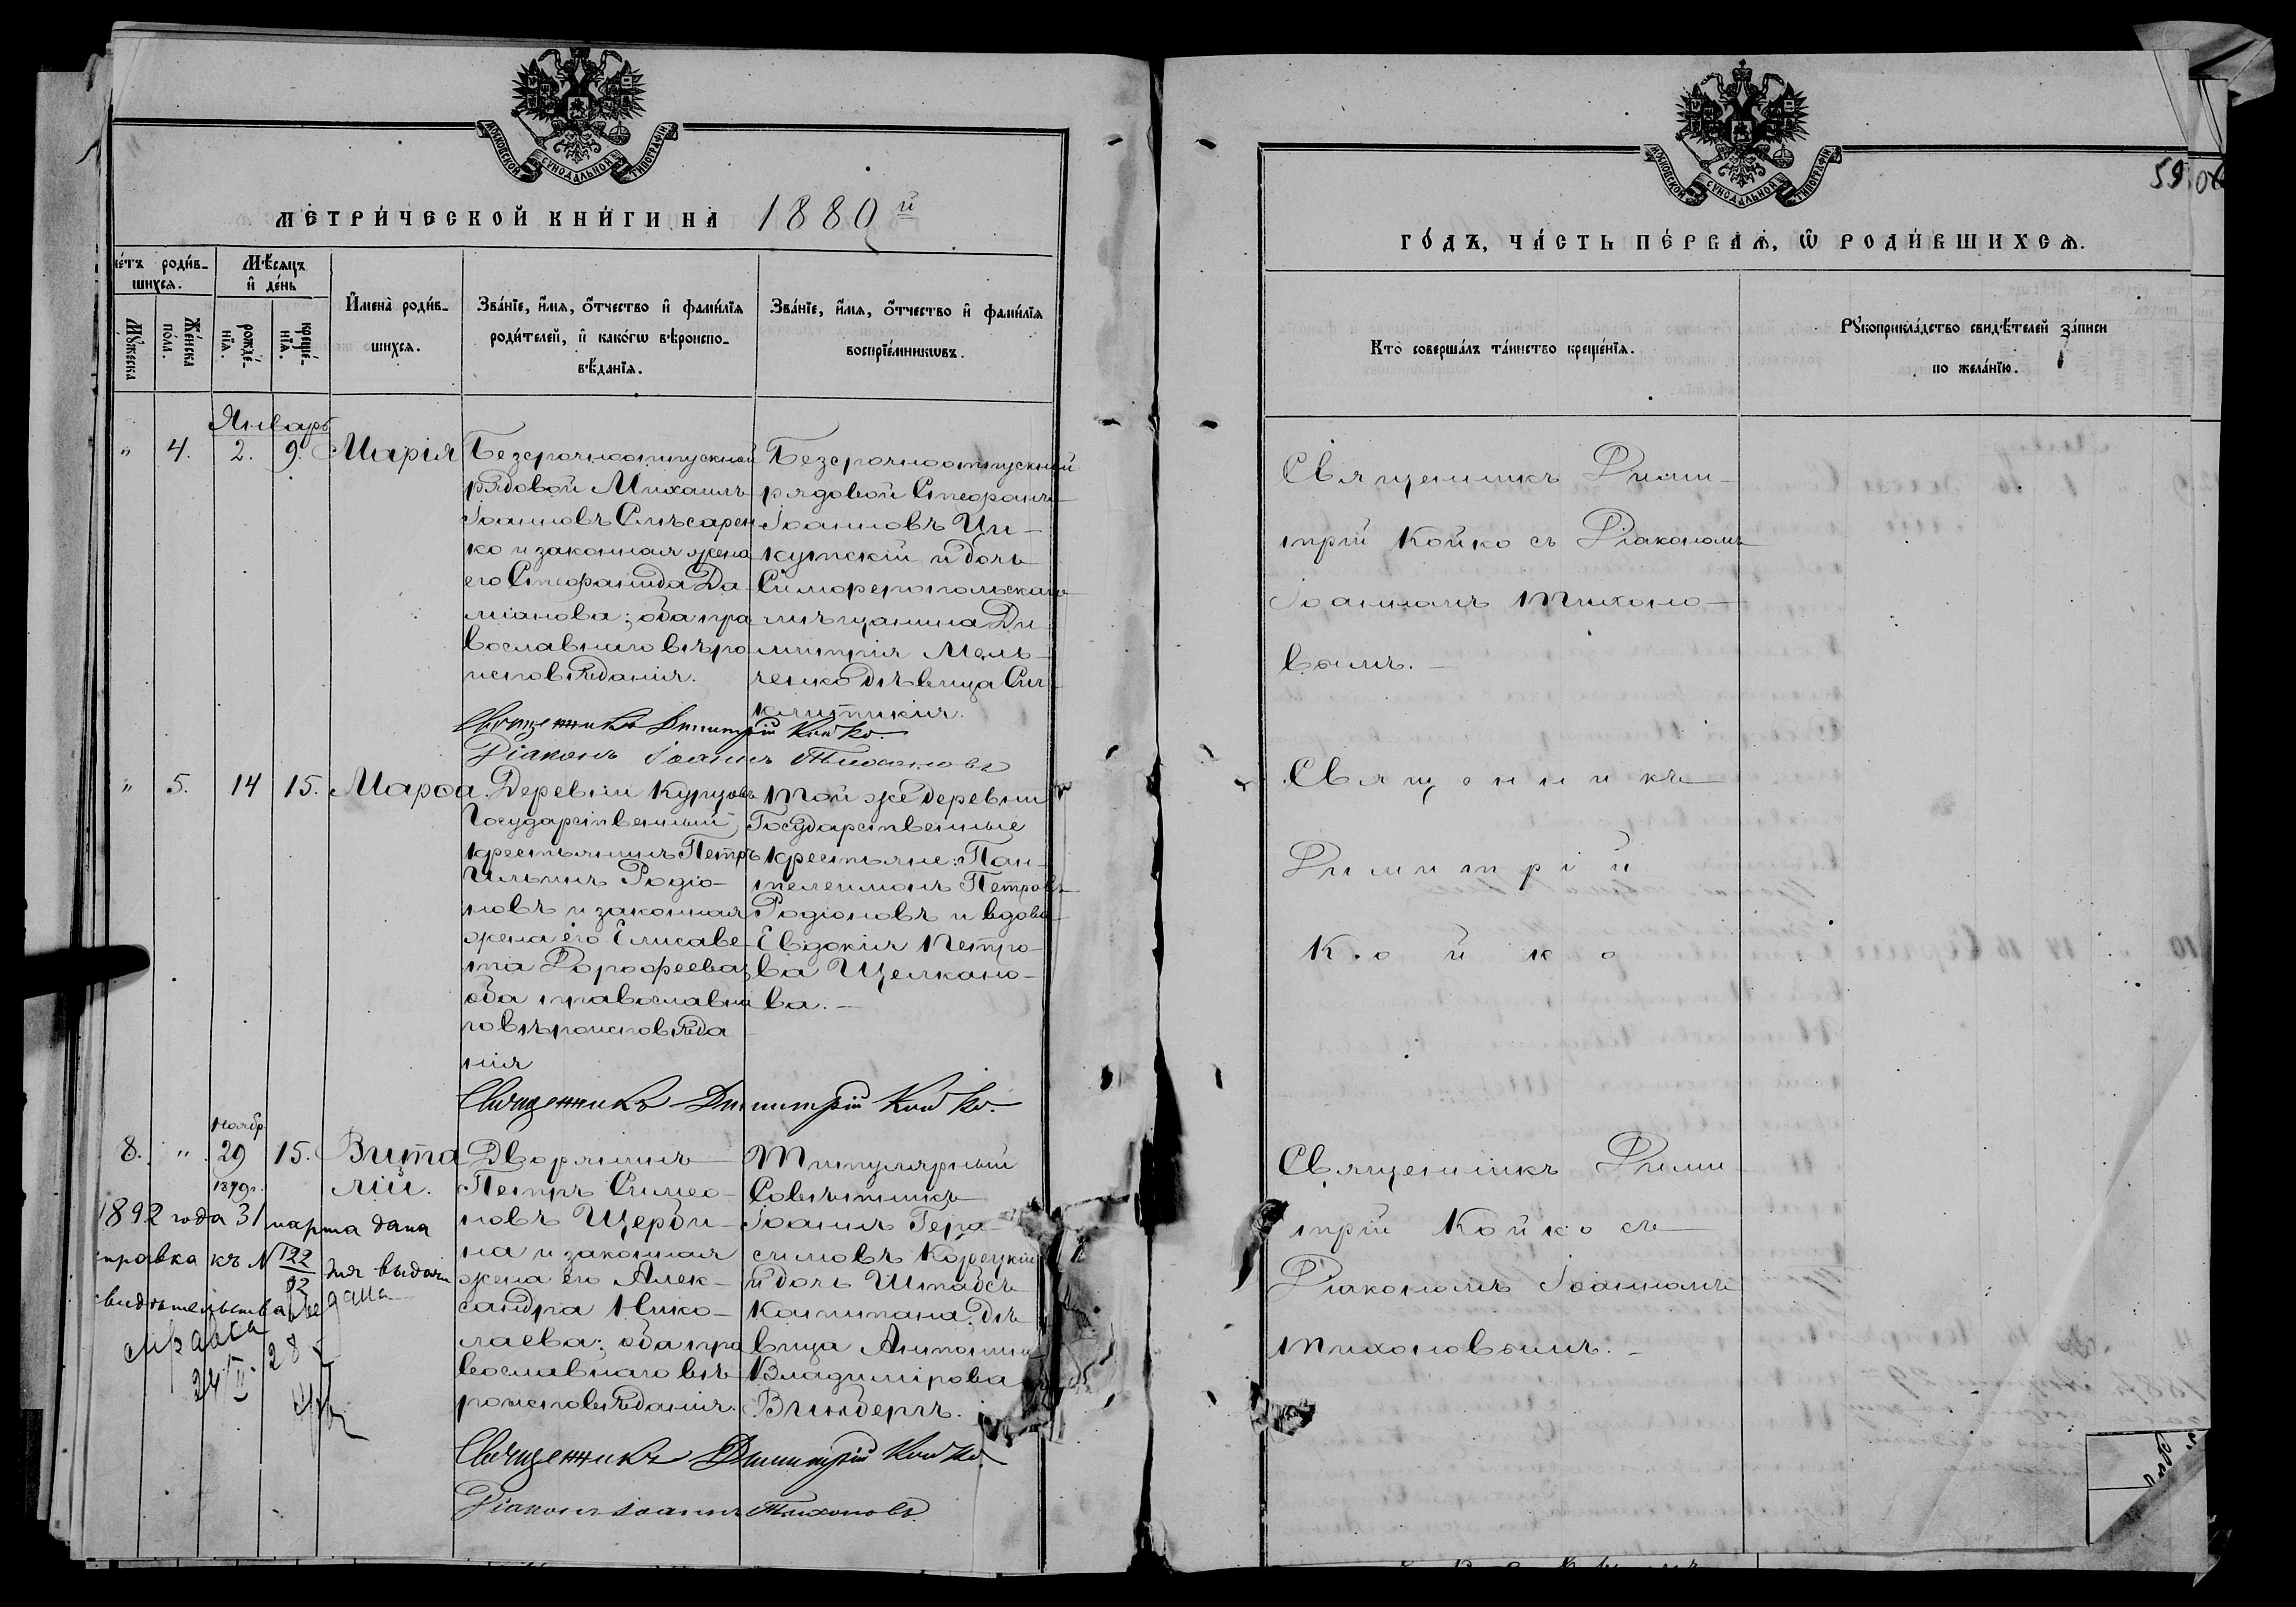 МОСКОВСКОЙ СУНОДАЛЬНОЙ ТИПОГРАФІИ
МЕТРИ́ЧЕСКОЙ КНИ́ГИ НА 1880й
Мѣ́сяцъ и҆ де́нь
роди́вшихся.
Му́жеска
Же́нска по́ла.
рожде́нїя.
креще́нїя.
И҆мена̀ роди́вшихся.
Зва́нїе, и҆́мя, ѻ҆́тчество и҆ фами́лїя
роди́телей, и҆ како́гѡ вѣроиспо-
вѣ́данїя.
Зва́нїе, и҆́мя, ѻ҆́тчество и҆ фами́лїя
воспрїе́мникѡвъ.
Январь
" 4. 2. 9. Марія
Безсрочноотпускной
рядовой Михаилъ
Іоанновъ Слѣсарен
ко и законная жена
его Стефанида Да
міанова; оба пра
вославнаго вѣро
исповѣданія.
Безсрочноотпускный
рядовой Стефанъ
Іоанновъ Ци-
кутскій и дочь
Симферопольскаго
мѣщанина Ди
митрія Мель-
ченко дѣвица Син
клитикія.
Священникъ Димитрій Койко.
Діаконъ Іоаннъ Тихоновъ
" 5. 14 15. Марѳа.
Деревни Курцовъ
Государственный
крестьянинъ Петръ
Ильинъ Родіо-
новъ и законная
жена его Елисаве-
та Дорофеева;
оба православна
го вѣроисповѣда
нія
Той же деревни
Государственные
крестьяне: Пан-
телеимонъ Петровъ
Родіоновъ и вдова
Евдокія Петро-
ва Щелкано-
ва.
Священникъ Димитрій Койко.
Ноябр.
8. " 29 15. Вита
1879г. лій.
Дворянинъ
Петръ Симео-
новъ Щерби-
на и законная
жена его Алек-
сандра Нико-
лаева; оба пра
вославнаго вѣ-
роисповѣданія.
Титулярный
Совѣтникъ
Іоаннъ Гера-
симовъ Корецкій
и дочь Штабсъ
Капитана, дѣ
вица Антонина
Владимірова
Винбергъ.
1892 года 31 марта дана
справка къ № 122/92 для выдачи
свидѣтельства
справка
24/II 28
Священникъ Димитрій Койко.
Діаконъ Іоаннъ Тихоновъ.
МОСКОВСКОЙ СУНОДАЛЬНОЙ ТИПОГРАФІИ
59
ГО́ДЪ, ЧА́СТЬ ПЕ́РВАЯ, Ѡ҆ РОДИ́ВШИХСЯ.
Кто̀ соверша́лъ та́инство креще́нїя.
Рꙋкоприкла́дство свидѣ́телей за́писи
по жела́нїю.
Священникъ Дими-
трій Койко съ Діакономъ
Іоанномъ Тихоно-
вымъ.
Священникъ
Димитрій
Койко
Священникъ Дими-
трій Койко съ
Діакономъ Іоанномъ
Тихоновымъ.